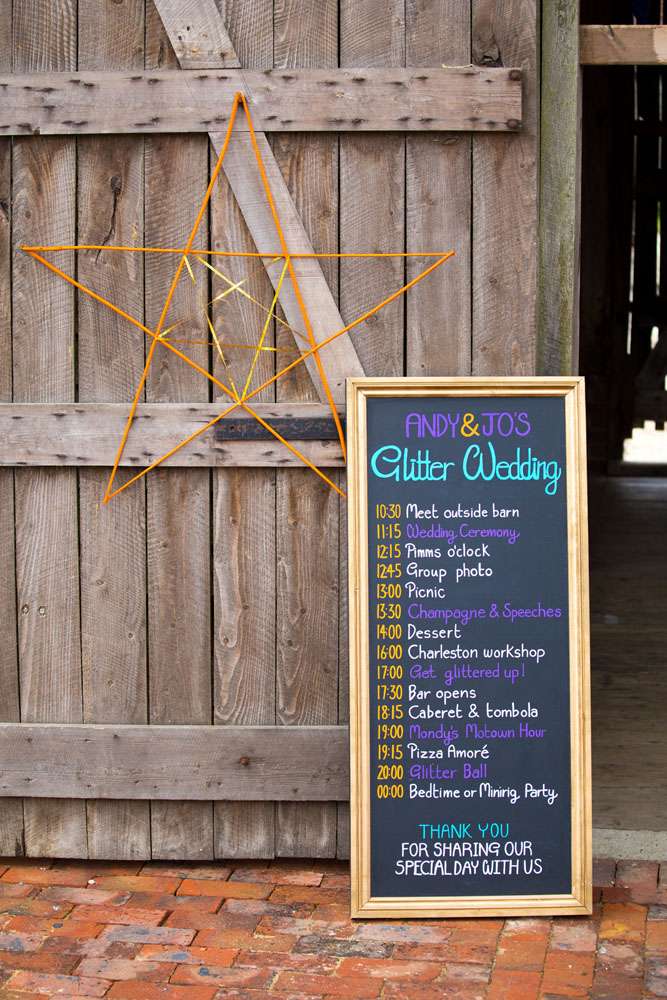 ANDY&JO'S
Glitter Wedding
10:30 Meet outside barn
11:15 Wedding Ceremony
12:15 Pimms o'clock
12:45 Group photo
13:00 Picnic
13:30 Champagne & Speeches
14:00 Dessert
16:00 Charleston workshop
17:00 Get glittered up!
17:30 Bar opens
18:15 Caberet & tombola
19:00 Mondy's Motown Hour
19:15 Pizza Amoré
20:00 Glitter Ball
00:00 Bedtime or Minirig Party
THANK YOU
FOR SHARING OUR
SPECIAL DAY WITH US